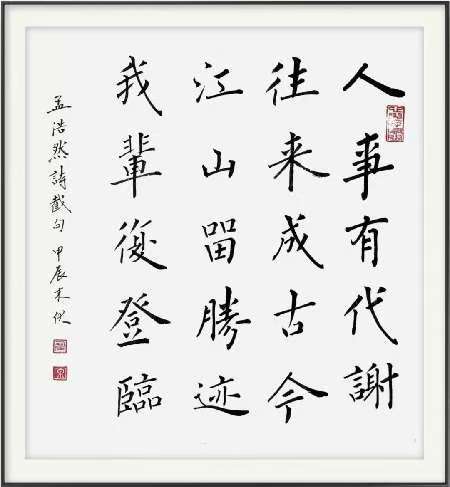 人事有代謝
往来成古今
江山留勝迹
我輩復登臨
孟浩然詩截句 甲辰末伏